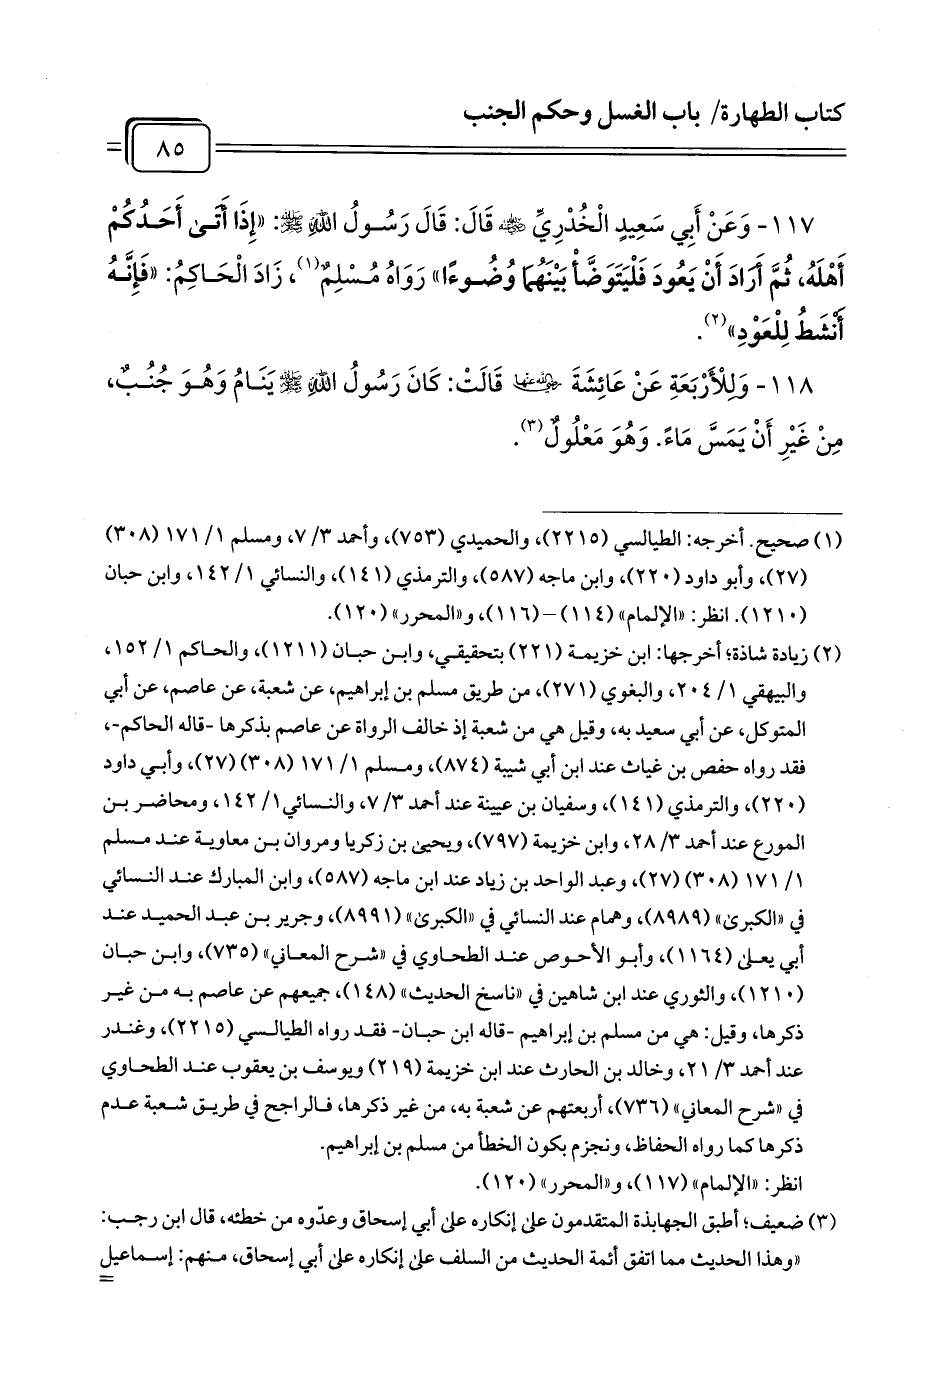 كتاب الطهارة/ باب الغسل وحكم الجنب
٨٥
١١٧- وَعَنْ أَبِي سَعِيدٍ الْخُدْرِيِّ رضي الله عنه قَالَ: قَالَ رَسُولُ اللهِ ﷺ: «إِذَا أَتَىٰ أَحَدُكُمْ
أَهْلَهُ، ثُمَّ أَرَادَ أَنْ يَعُودَ فَلْيَتَوَضَّأْ بَيْنَهُمَا وُضُوءًا» رَوَاهُ مُسْلِمٌ(١)، زَادَ الْحَاكِمُ: «فَإِنَّهُ
أَنْشَطُ لِلْعَوْدِ»(٢).
١١٨- وَلِلْأَرْبَعَةِ عَنْ عَائِشَةَ رضي الله عنها قَالَتْ: كَانَ رَسُولُ اللهِ ﷺ يَنَامُ وَهُوَ جُنُبٌ،
مِنْ غَيْرِ أَنْ يَمَسَّ مَاءً. وَهُوَ مَعْلُولٌ(٣).
(١) صحيح. أخرجه: الطيالسي (٢٢١٥)، والحميدي (٧٥٣)، وأحمد ٣/ ٧، ومسلم ١/ ١٧١ (٣٠٨)
(٢٧)، وأبو داود (٢٢٠)، وابن ماجه (٥٨٧)، والترمذي (١٤١)، والنسائي ١/ ١٤٢، وابن حبان
(١٢١٠). انظر: «الإلمام» (١١٤) –(١١٦)، و«المحرر» (١٢٠).
(٢) زيادة شاذة؛ أخرجها: ابن خزيمة (٢٢١) بتحقيقي، وابن حبان (١٢١١)، والحاكم ١/ ١٥٢،
والبيهقي ١/ ٢٠٤، والبغوي (٢٧١)، من طريق مسلم بن إبراهيم، عن شعبة، عن عاصم، عن أبي
المتوكل، عن أبي سعيد به، وقيل هي من شعبة إذ خالف الرواة عن عاصم بذكرها -قاله الحاكم-،
فقد رواه حفص بن غياث عند ابن أبي شيبة (٨٧٤)، ومسلم ١/ ١٧١ (٣٠٨) (٢٧)، وأبي داود
(٢٢٠)، والترمذي (١٤١)، وسفيان بن عيينة عند أحمد ٣/ ٧، والنسائي١/ ١٤٢، ومحاضر بن
المورع عند أحمد ٣/ ٢٨، وابن خزيمة (٧٩٧)، ويحيىٰ بن زكريا ومروان بن معاوية عند مسلم
١/ ١٧١ (٣٠٨) (٢٧)، وعبد الواحد بن زياد عند ابن ماجه (٥٨٧)، وابن المبارك عند النسائي
في «الكبرىٰ» (٨٩٨٩)، وهمام عند النسائي في «الكبرىٰ» (٨٩٩١)، وجرير بن عبد الحميد عند
أبي يعلىٰ (١١٦٤)، وأبو الأحوص عند الطحاوي في «شرح المعاني» (٧٣٥)، وابن حبان
(١٢١٠)، والثوري عند ابن شاهين في «ناسخ الحديث» (١٤٨)، جميعهم عن عاصم به من غير
ذكرها، وقيل: هي من مسلم بن إبراهيم -قاله ابن حبان- فقد رواه الطيالسي (٢٢١٥)، وغندر
عند أحمد ٣/ ٢١، وخالد بن الحارث عند ابن خزيمة (٢١٩) ويوسف بن يعقوب عند الطحاوي
في «شرح المعاني» (٧٣٦)، أربعتهم عن شعبة به، من غير ذكرها، فالراجح في طريق شعبة عدم
ذكرها كما رواه الحفاظ، ونجزم بكون الخطأ من مسلم بن إبراهيم.
انظر: «الإلمام» (١١٧)، و«المحرر» (١٢٠).
(٣) ضعيف؛ أطبق الجهابذة المتقدمون علىٰ إنكاره علىٰ أبي إسحاق وعدّوه من خطئه، قال ابن رجب:
«وهذا الحديث مما اتفق أئمة الحديث من السلف علىٰ إنكاره علىٰ أبي إسحاق، منهم: إسماعيل
=